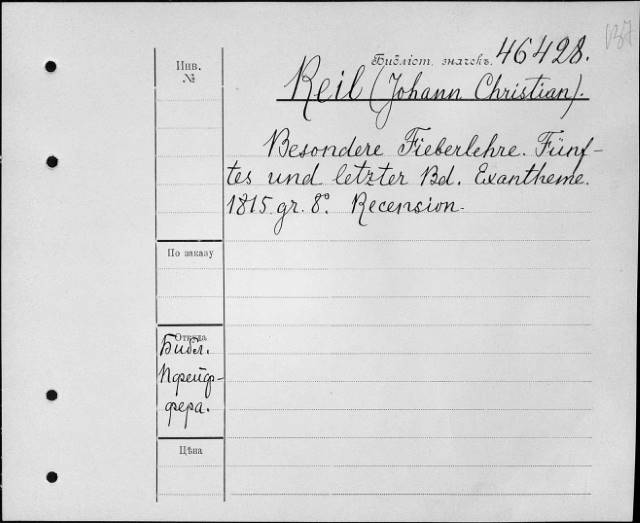 Библіот. значекъ. 46428.
Инв.
№
Reil (Johann Christian).
Besondere Fieberlehre. Fünf-
tes und letzter Bd. Exantheme.
1815. gr. 8°. Recension.
По заказу
Откуда
Библ.
Пфейф-
фера.
Цѣна